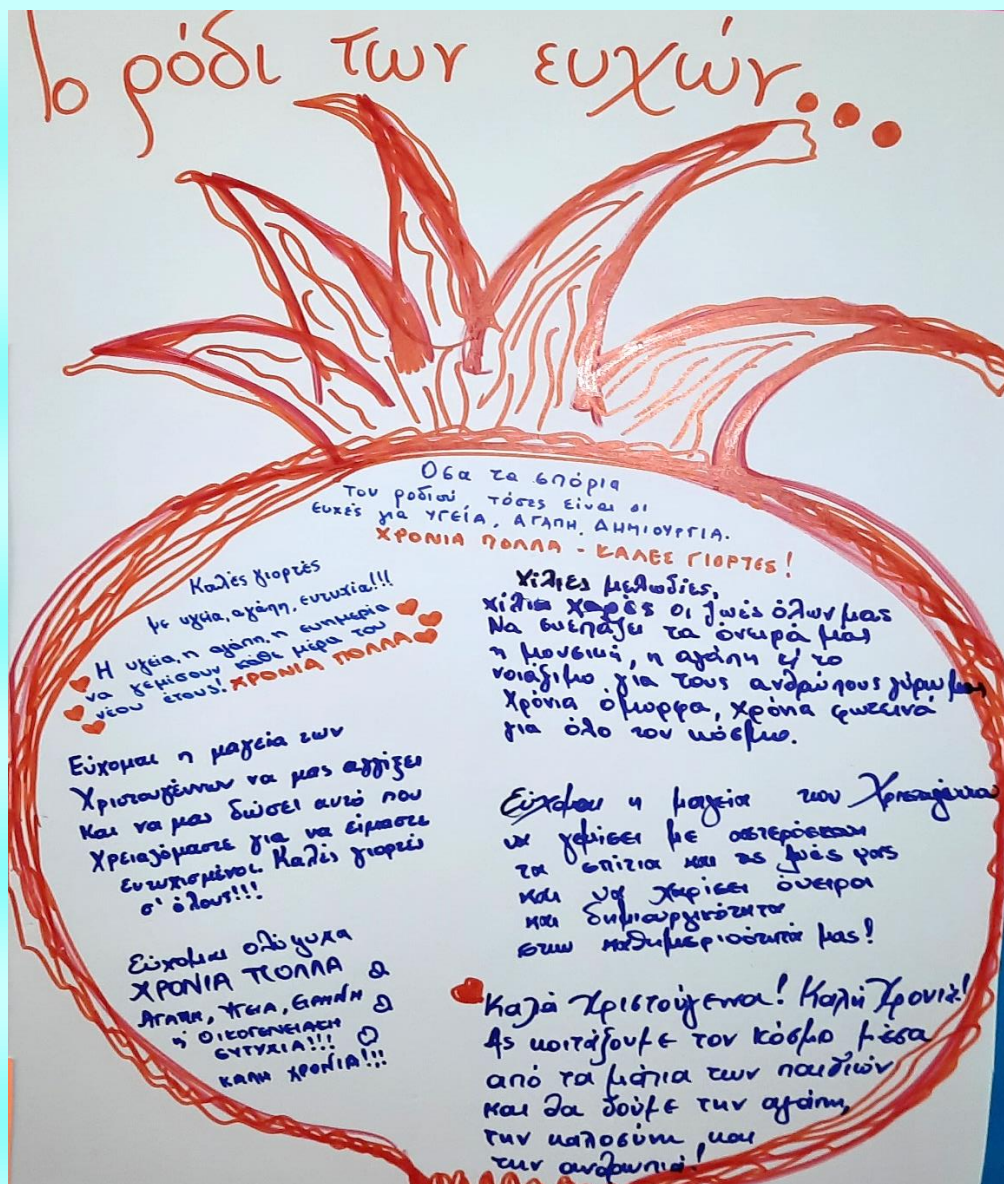 Το ρόδι των ευχών...
Όσα τα σπόρια
του ροδιού, τόσες είναι οι
ευχές για ΥΓΕΙΑ, ΑΓΑΠΗ, ΔΗΜΙΟΥΡΓΙΑ.
ΧΡΟΝΙΑ ΠΟΛΛΑ - ΚΑΛΕΣ ΓΙΟΡΤΕΣ!
Καλές γιορτές
με υγεία, αγάπη, ευτυχία!!!
Η υγεία, η αγάπη, η ευημερία
να γεμίσουν κάθε μέρα του
νέου έτους! ΧΡΟΝΙΑ ΠΟΛΛΑ
Εύχομαι η μαγεία των
Χριστουγέννων να μας αγγίξει
και να μας δώσει αυτό που
χρειαζόμαστε για να είμαστε
ευτυχισμένοι. Καλές γιορτές
σ' όλους!!!
Εύχομαι ολόψυχα
ΧΡΟΝΙΑ ΠΟΛΛΑ
ΑΓΑΠΗ, ΥΓΕΙΑ, ΕΙΡΗΝΗ
κ' ΟΙΚΟΓΕΝΕΙΑΚΗ
ΕΥΤΥΧΙΑ!!!
ΚΑΛΗ ΧΡΟΝΙΑ!!!
Χίλιες μελωδίες,
χίλιες χαρές οι ζωές όλων μας
Να συεπάζει τα όνειρά μας
η μουσική, η αγάπη κι το
νοιάξιμο για τους ανθρώπους γύρω μας
Χρόνια όμορφα, χρόνια φωτεινά
για όλο τον κόσμο.
Εύχομαι η μαγεία των Χριστουγέννων
να γεμίσει με αστερόσκονη
τα σπίτια και τις ζωές μας
και να χαρίσει όνειρα
και δημιουργικότητα
στην καθημερινότητά μας!
Καλά Χριστούγεννα! Καλή Χρονιά!
Ας κοιτάξουμε τον κόσμο μέσα
από τα μάτια των παιδιών
και θα δούμε την αγάπη,
την καλοσύνη και
την ανθρωπιά!